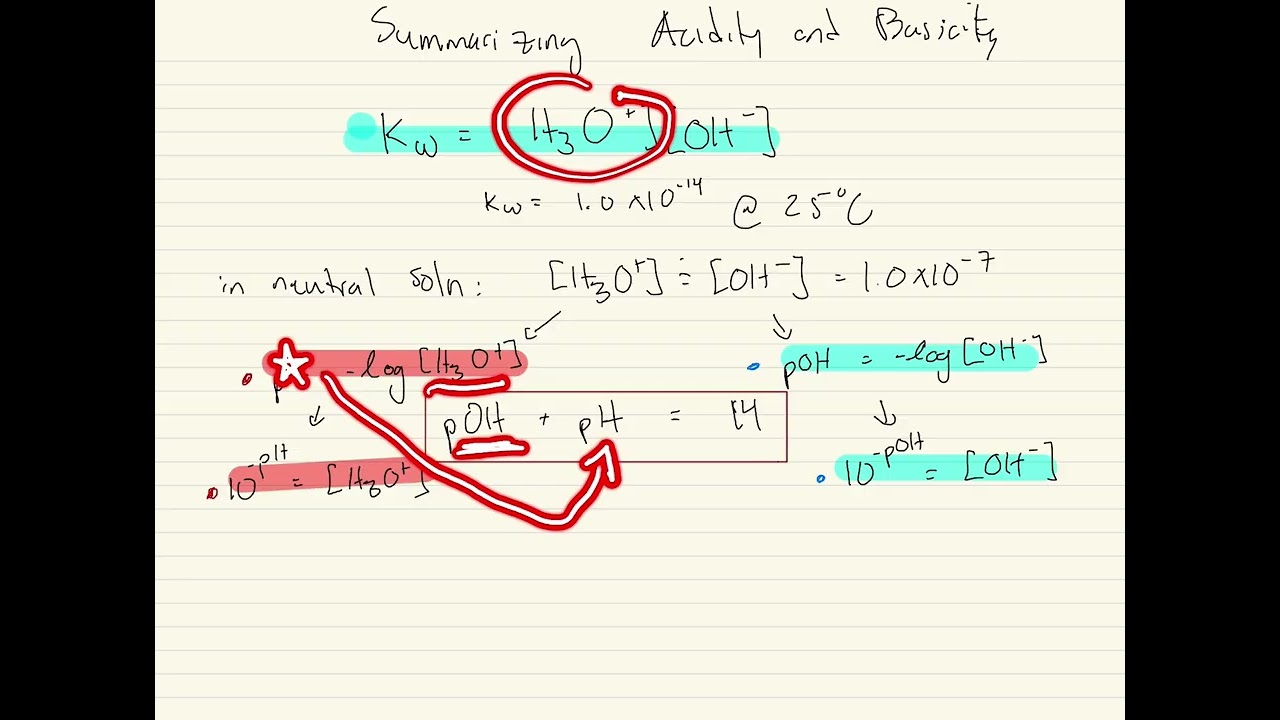 Summarizing Acidity and Basicity
Kw = H3O+][OH-]
Kw = 1.0 x10-14 @ 25°C
in neutral soln: [H3O+] = [OH-] = 1.0x10-7
p -log [H3O+]
pOH = -log [OH-]
pOH + pH = 14
10-pH = [H3O+]
10-pOH = [OH-]